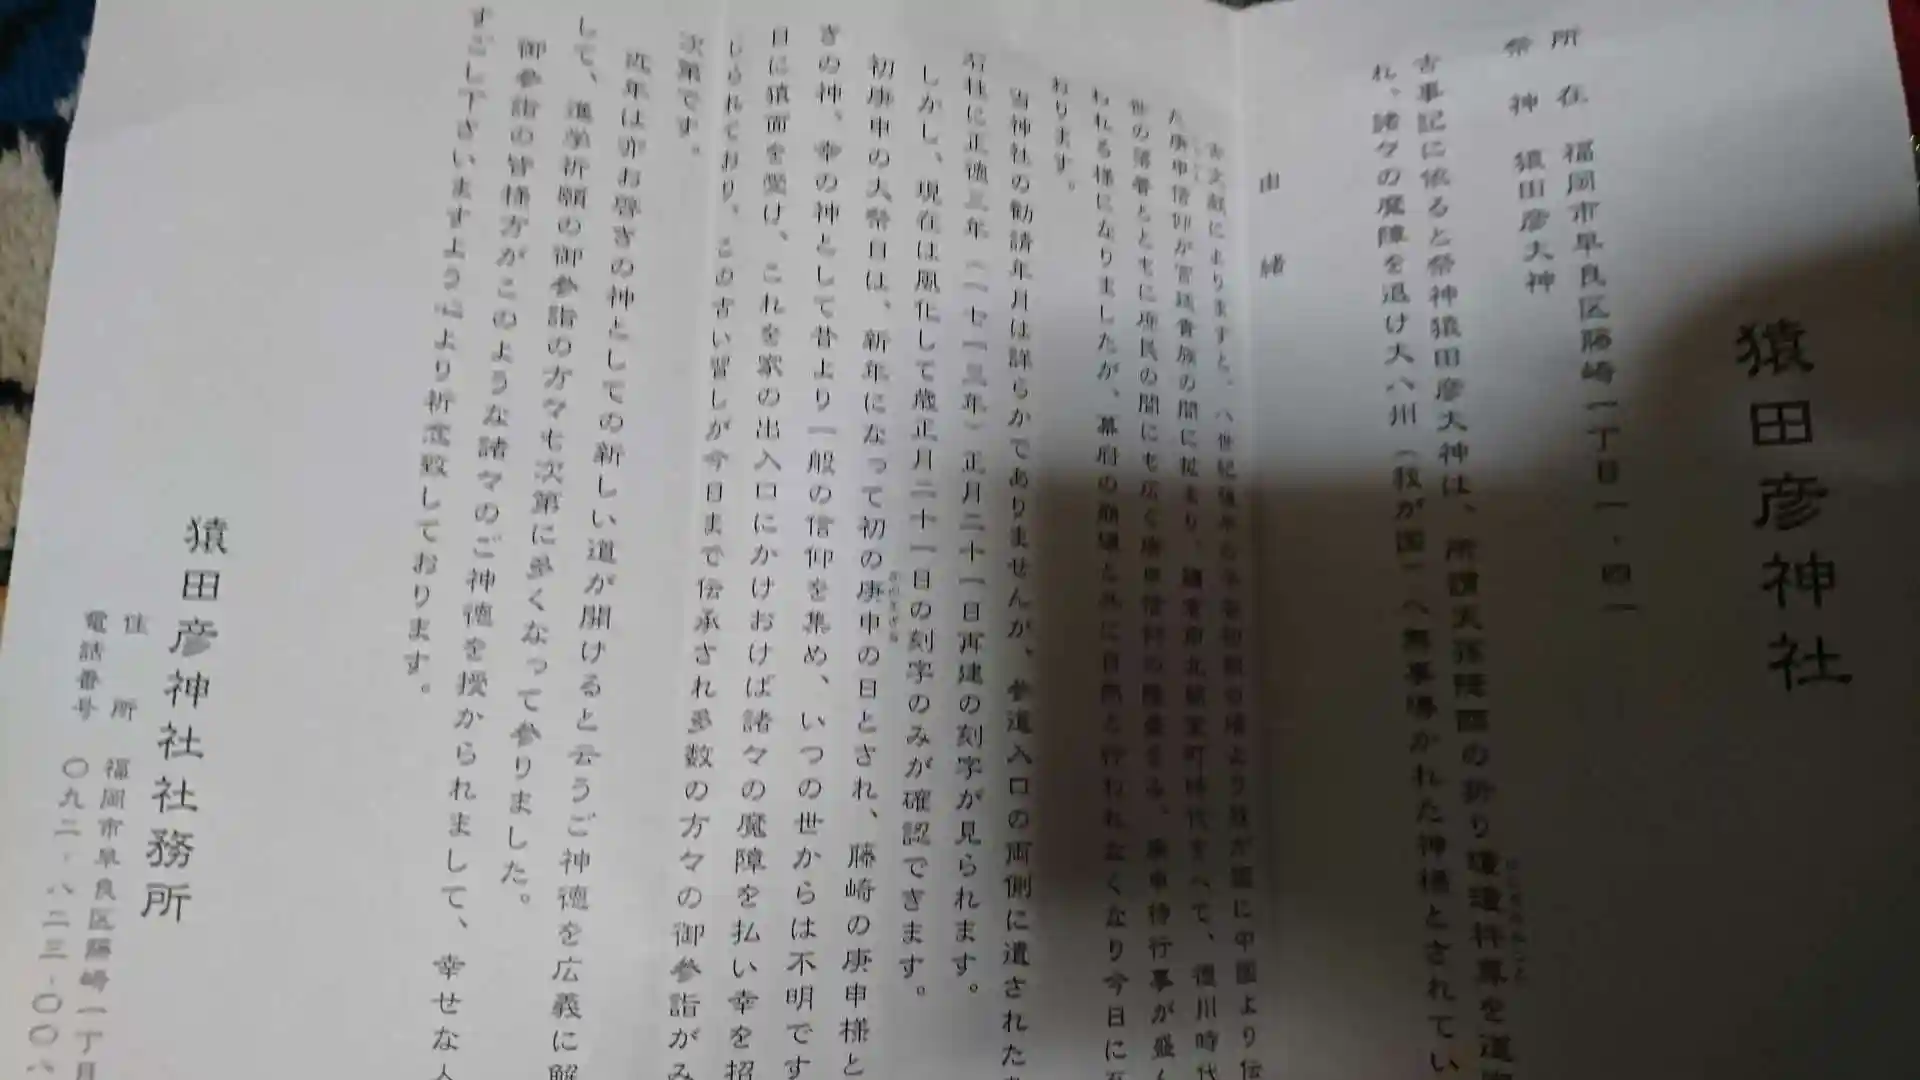 猿田彦神社
所在 福岡市早良区藤崎一丁目一・四一
祭神 猿田彦大神
古事記に依ると祭神猿田彦大神は、所謂天孫降臨の折り瓊瓊杵尊を道
れ、諸々の魔障を退け大八州(我が国)へ無事導かれた神様とされてい
由緒
古文献によりますと、八世紀後半
た庚申信仰が宮廷貴族の間に拡まり、室町時代をへて、徳川時代
世の落着とともに庶民の間にも広く庚申信仰の隆盛をみ、庚申待行事が盛
われる様になりましたが、幕府の崩壊と共に自然と行われなくなり今日に至
おります。
当神社の勧請年月は詳らかでありませんが、参道入口の両側に遺された
石柱に正徳三年(一七一三年)正月二十一日再建の刻字が見られます。
しかし、現在は風化して歳正月二十一日の刻字のみが確認できます。
初庚申の大祭日は、新年になって初の庚申の日とされ、藤崎の庚申様と
きの神、幸の神として昔より一般の信仰を集め、いつの世からは不明です
日に猿面を受け、これを家の出入口にかけおけば諸々の魔障を払い幸を招
じられており、この古い習しが今日まで伝承され多数の方々の御参詣がみ
次第です。
近年は亦お導きの神としての新しい道が開けると云うご神徳を広義に解
して、進学祈願の御参詣の方々も次第に多くなって参りました。
御参詣の皆様方がこのような諸々のご神徳を授かられまして、幸せな人
すごし下さいますよう心より祈念致しております。
猿田彦神社社務所
住所 福岡市早良区藤崎一丁目
電話番号 〇九二・八二三・〇〇八